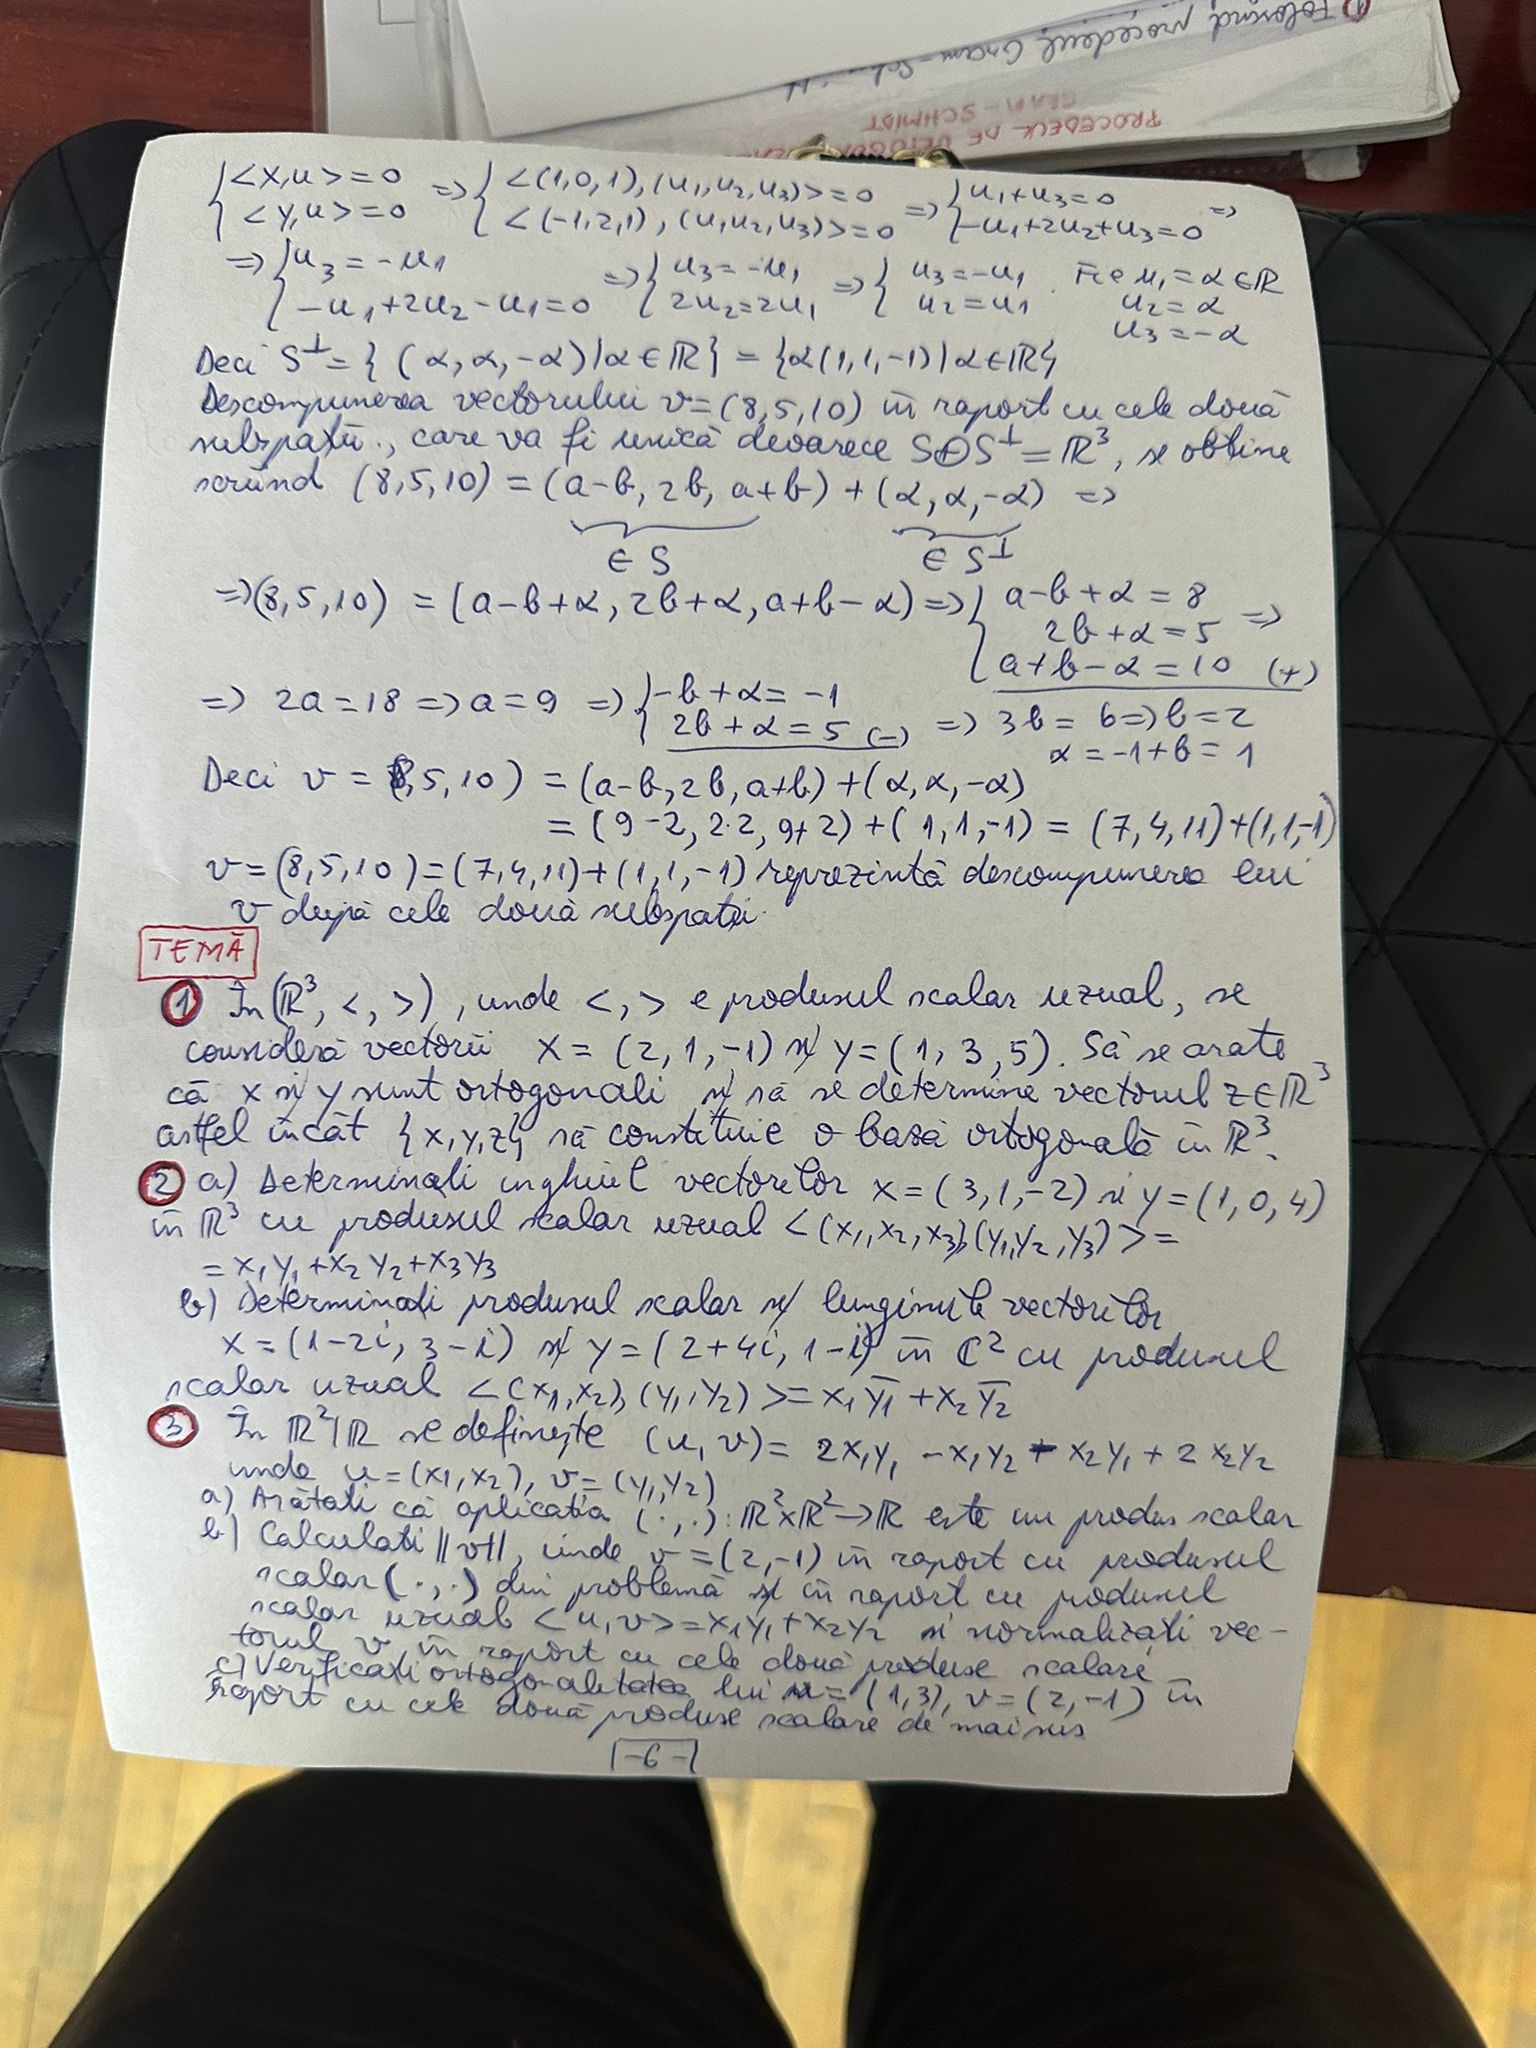 1 Folosind procedeul Gram-Sch
PROCEDEUL DE
GRAM-SCHMIDT
{<x,u>=0 => {<(1,0,1),(u₁,u₂,u₃)>=0 => {u₁+u₃=0 =>
<y,u>=0 <(-1,2,1),(u₁,u₂,u₃)>=0 -u₁+2u₂+u₃=0
=> {u₃=-u₁ => {u₃=-u₁ => {u₃=-u₁. Fie u₁=α∈ℝ
-u₁+2u₂-u₁=0 2u₂=2u₁ u₂=u₁ u₂=α
u₃=-α
Deci S^⊥={(α,α,-α)|α∈ℝ}={α(1,1,-1)|α∈ℝ}
Descompunerea vectorului v=(8,5,10) în raport cu cele două
subspații, care va fi unică deoarece S⊕S^⊥=ℝ³, se obține
scriind (8,5,10)=(a-b, 2b, a+b)+(α,α,-α) =>
∈ S ∈ S^⊥
=>(8,5,10)=(a-b+α, 2b+α, a+b-α)=>{a-b+α=8
2b+α=5 =>
a+b-α=10 (+)
=> 2a=18=>a=9 => {-b+α=-1
2b+α=5 (-) => 3b=6=>b=2
α=-1+b=1
Deci v=(8,5,10)=(a-b,2b,a+b)+(α,α,-α)
=(9-2, 2·2, 9+2)+(1,1,-1)=(7,4,11)+(1,1,-1)
v=(8,5,10)=(7,4,11)+(1,1,-1) reprezintă descompunerea lui
v după cele două subspații.
TEMĂ
1 În (ℝ³, <,>), unde <,> e produsul scalar uzual, se
consideră vectorii x=(2,1,-1) și y=(1,3,5). Să se arate
că x și y sunt ortogonali și să se determine vectorul z∈ℝ³
astfel încât {x,y,z} să constituie o bază ortogonală în ℝ³.
2 a) Determinați unghiul vectorilor x=(3,1,-2) și y=(1,0,4)
în ℝ³ cu produsul scalar uzual <(x₁,x₂,x₃),(y₁,y₂,y₃)>=
=x₁y₁+x₂y₂+x₃y₃
b) Determinați produsul scalar și lungimile vectorilor
x=(1-2i, 3-i) și y=(2+4i, 1-i) în ℂ² cu produsul
scalar uzual <(x₁,x₂),(y₁,y₂)>=x₁y̅₁+x₂y̅₂
3 În ℝ²/ℝ se definește (u,v)=2x₁y₁-x₁y₂-x₂y₁+2x₂y₂
unde u=(x₁,x₂), v=(y₁,y₂)
a) Arătați că aplicația (·,·):ℝ²×ℝ²→ℝ este un produs scalar
b) Calculați ||v||, unde v=(2,-1) în raport cu produsul
scalar (·,·) din problemă și în raport cu produsul
scalar uzual <u,v>=x₁y₁+x₂y₂ și normalizați vec-
torul v în raport cu cele două produse scalare
c) Verificați ortogonalitatea lui u=(1,3), v=(2,-1) în
raport cu cele două produse scalare de mai sus
-6-